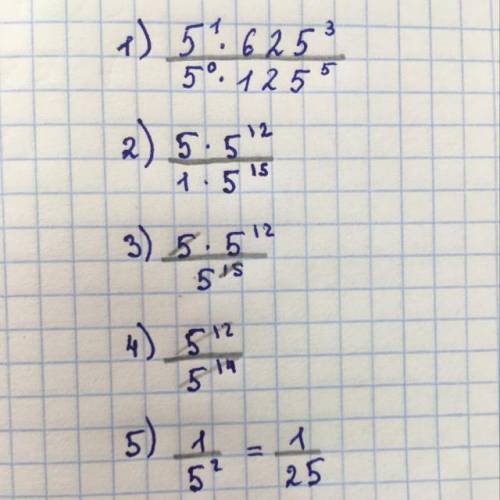 1) 5¹ · 625³
5⁰ · 125⁵
2) 5 · 5¹²
1 · 5¹⁵
3) 5 · 5¹²
5¹⁵
4) 5¹²
5¹⁴
5) 1/5² = 1/25